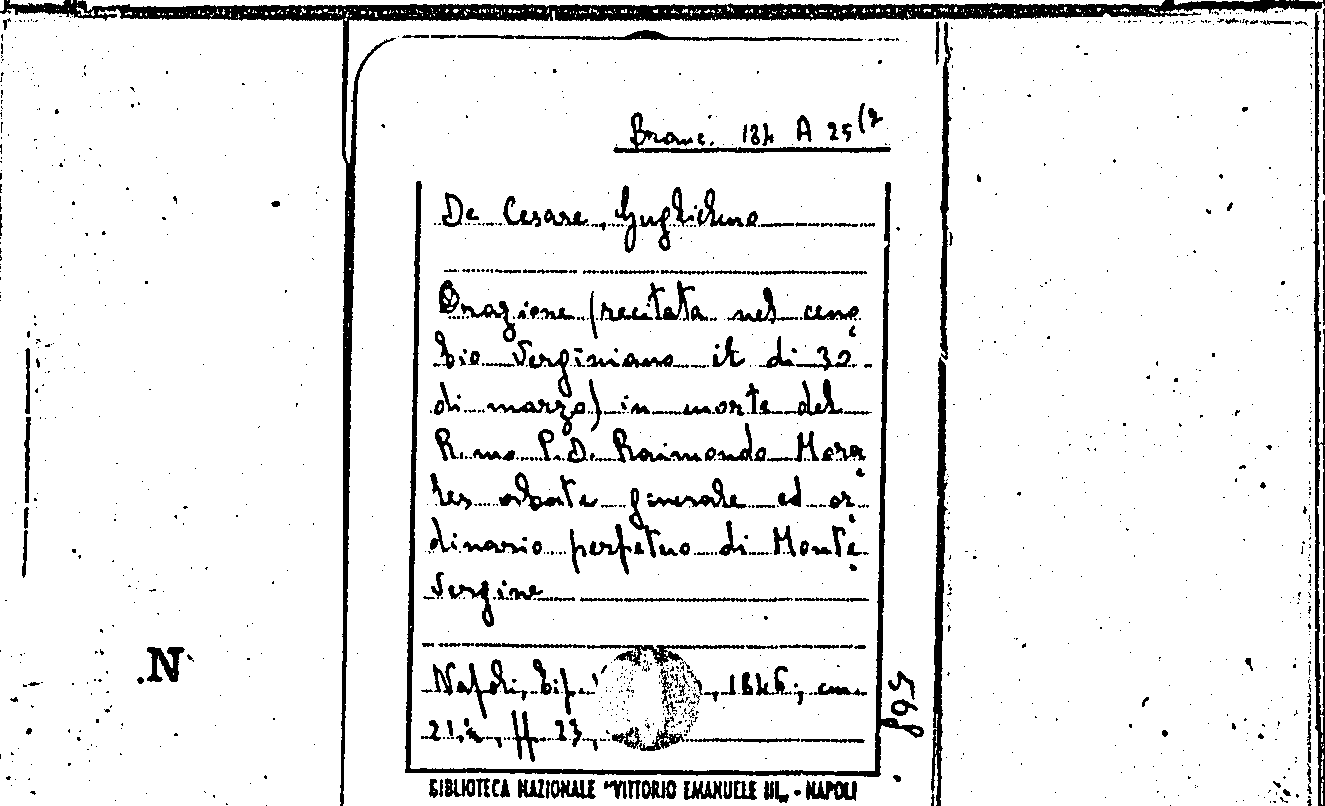 Branc. 184 A 25(2
De Cesare, Guglielmo
Orazione (recitata nel ceno
bio Verginiano il dì 30
di marzo) in morte del
R.mo P.D. Raimondo Mora
les abate generale ed or
dinario perpetuo di Monte
Vergine
Napoli, tip. , 1846; cm.
21. , ff. 23,
895
.N
BIBLIOTECA NAZIONALE "VITTORIO EMANUELE III„ - NAPOLI